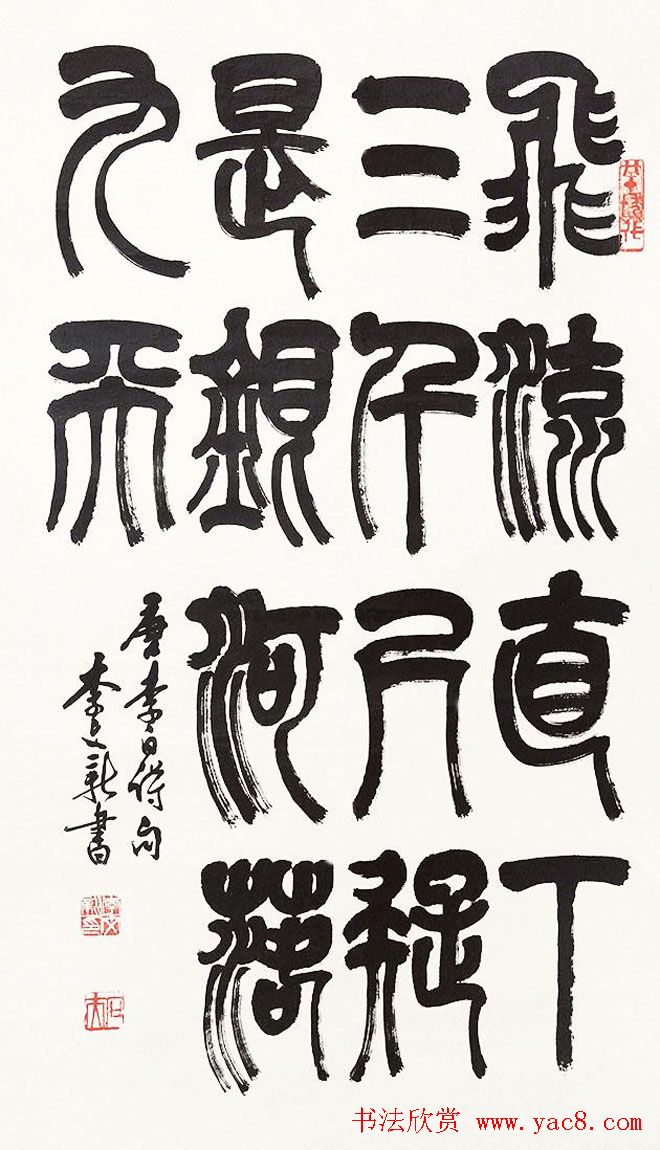 飛流直下
三千尺疑
是銀河落
九天
唐李白詩句
李文新書
书法欣赏 www.yac8.com